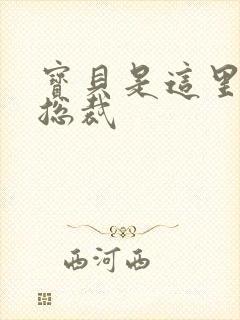 寶貝是這里
總裁
西河西